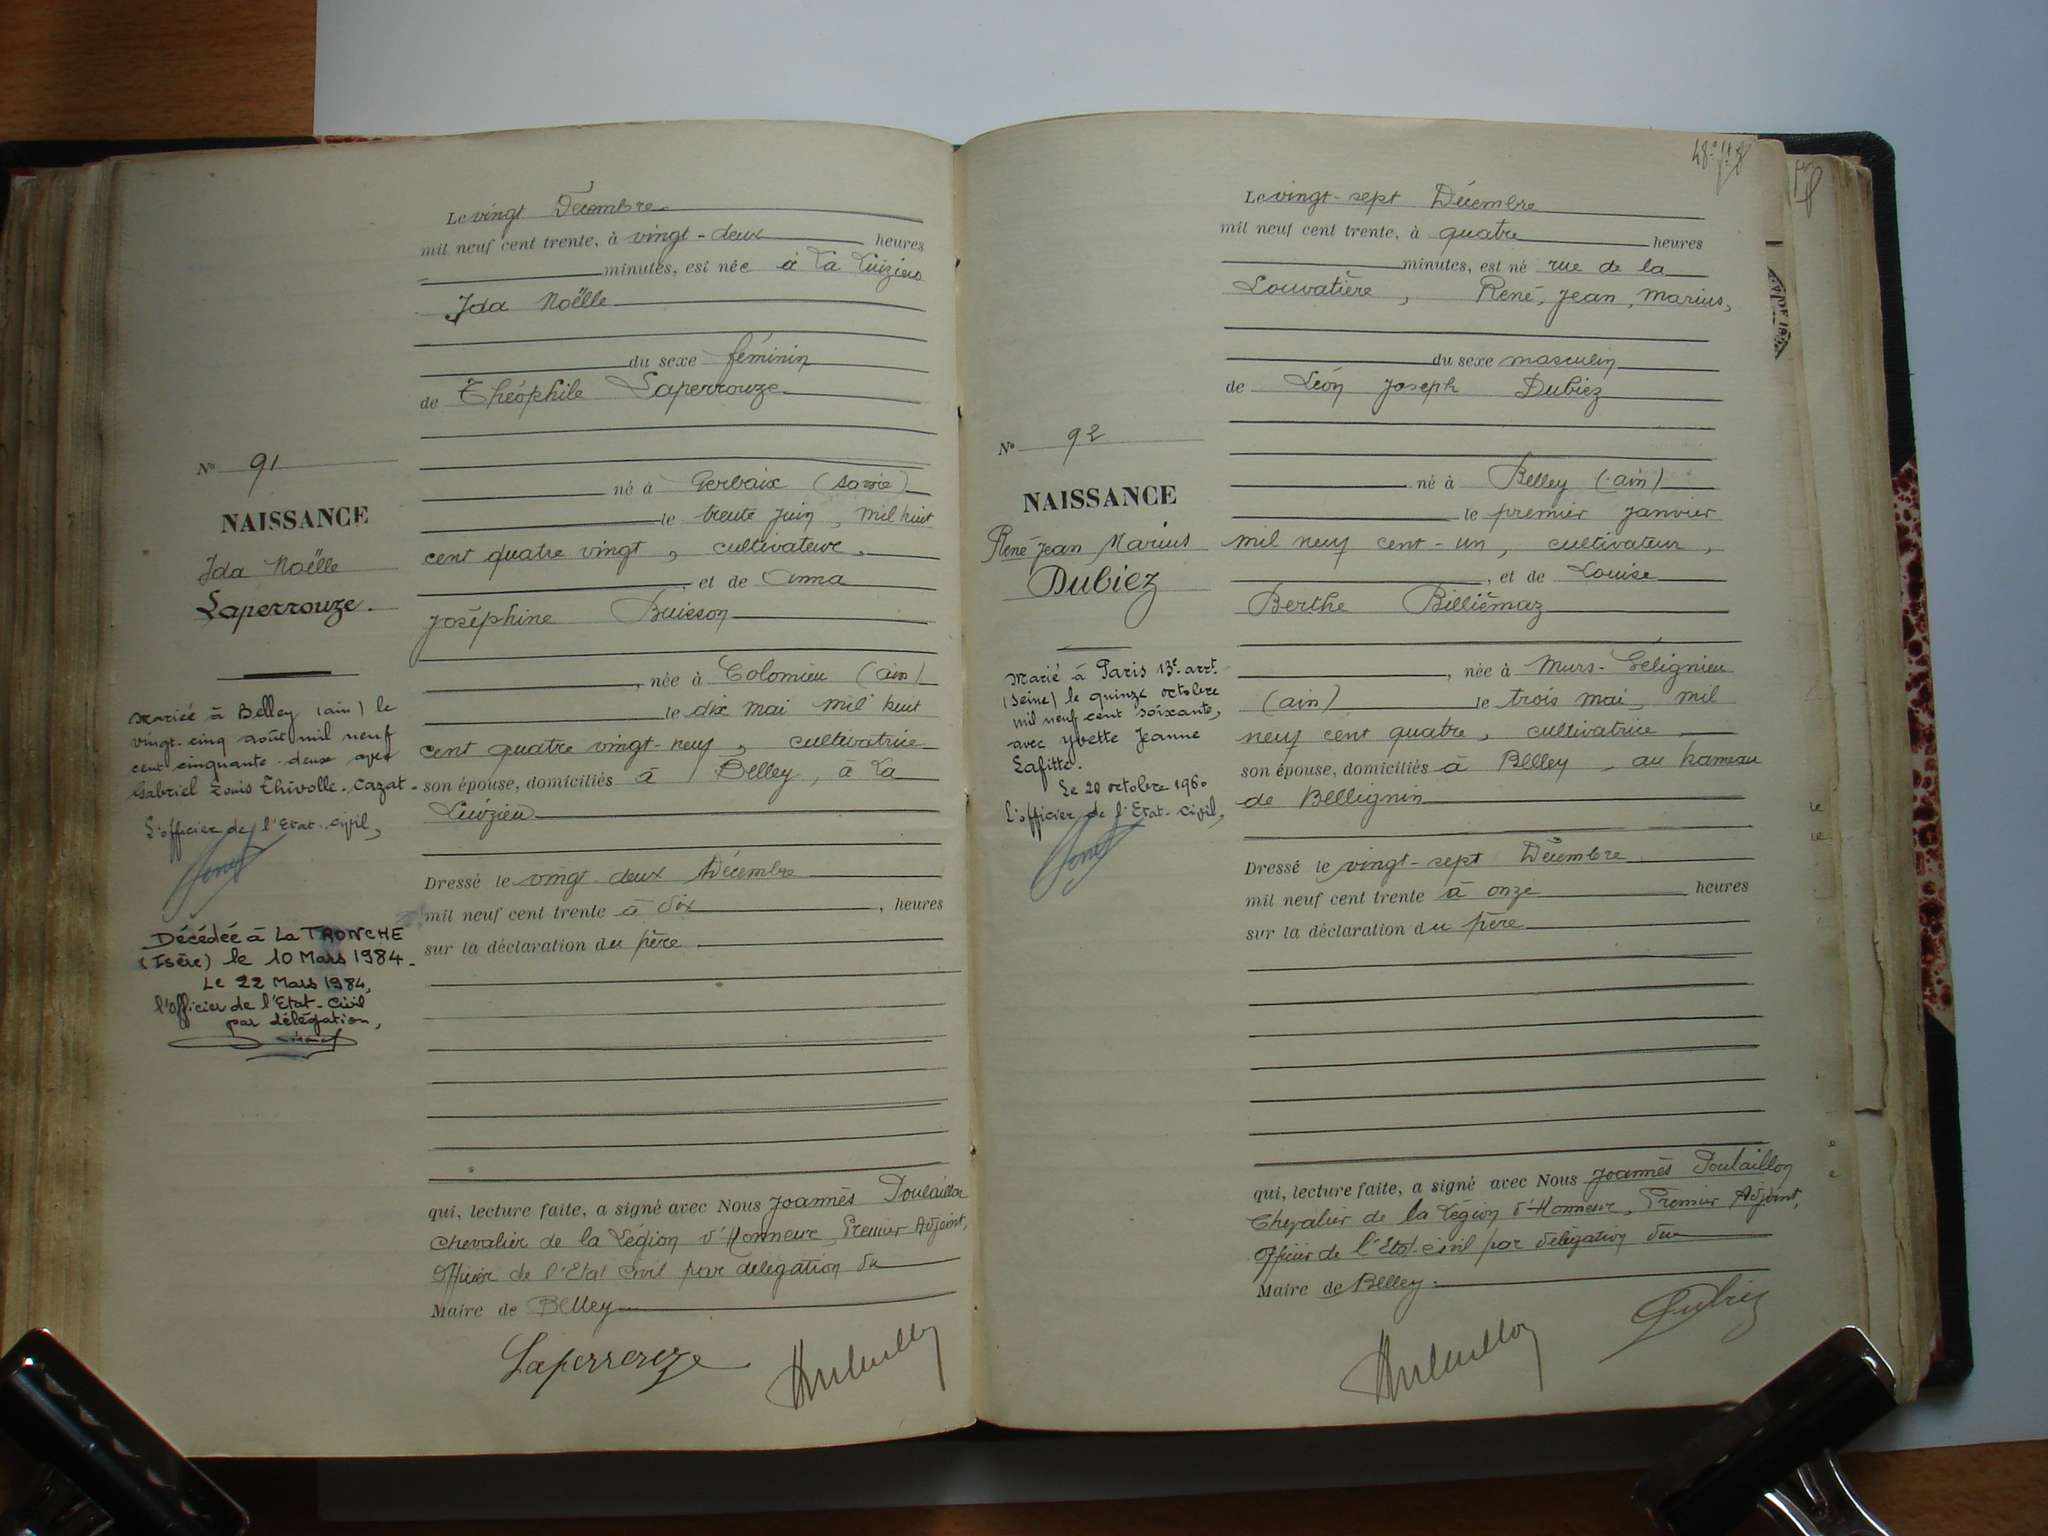 Le vingt Décembre
mil neuf cent trente, à vingt-deux heures
minutes, est née à La
Ida Noëlle
du sexe féminin
de Théophile Laperrouze
né à Gerbaix (Savoie)
le trente Juin, mil huit
cent quatre vingt, cultivateur,
, et de Anna
Joséphine Buisson
, née à Colomieu (ain)
le dix mai mil huit
cent quatre vingt-neuf, cultivatrice
son épouse, domiciliés à Belley, à La
Dressé le vingt deux Décembre
mil neuf cent trente à dix, heures
sur la déclaration du père
qui, lecture faite, a signé avec Nous Joannès Poulaillon
Chevalier de la Légion d'Honneur, Premier Adjoint,
Officier de l'Etat civil par délégation du
Maire de Belley
Laperrouze
No 91
NAISSANCE
Ida Noëlle
Laperrouze.
Mariée à Belley (ain) le
vingt-cinq août mil neuf
cent cinquante-deux avec
Gabriel Louis Thivolle-Cazat.
L'officier de l'Etat-civil,
Décédée à La TRONCHE
(Isère) le 10 Mars 1984.
Le 22 Mars 1984,
l'Officier de l'Etat-Civil
par délégation,
Le vingt-sept Décembre
mil neuf cent trente, à quatre heures
minutes, est né rue de la
Louvatière, René, Jean, Marius,
du sexe masculin
de Léon Joseph Dubiez
né à Belley (ain)
le premier janvier
mil neuf cent-un, cultivateur,
, et de Louise
Berthe Billiémaz
, née à Murs-Gélignieu
(ain) le trois mai, mil
neuf cent quatre, cultivatrice,
son épouse, domiciliés à Belley, au hameau
de Bellignin
Dressé le vingt-sept Décembre
mil neuf cent trente à onze heures
sur la déclaration du père
qui, lecture faite, a signé avec Nous Joannès Poulaillon
Chevalier de la Légion d'Honneur, Premier Adjoint,
Officier de l'Etat-civil par délégation du
Maire de Belley.
Dubiez
No 92
NAISSANCE
René Jean Marius
Dubiez
Marié à Paris 13e arrt.
(Seine) le quinze octobre
mil neuf cent soixante,
avec Yvette Jeanne
Lafitte.
Le 20 octobre 1960
L'officier de l'Etat-civil,